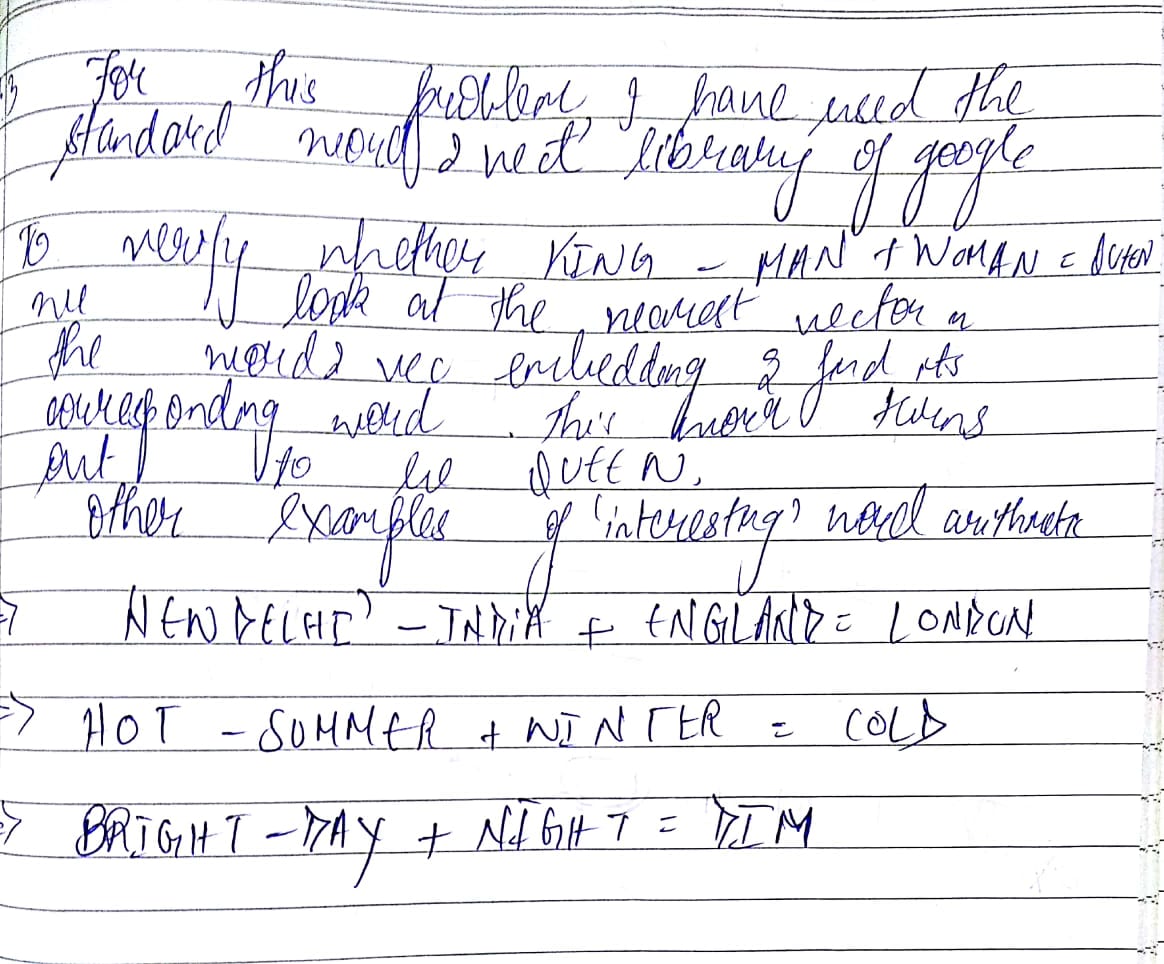 For this problem, I have used the
standard word 2 vect' library of google
To verify whether KING - MAN + WOMAN = QUEEN
we look at the nearest vector in
the word2 vec embedding & find its
corresponding word. This word turns
out to be QUEEN.
Other examples of 'interesting' word arithmetic
=> NEW DELHI' - INDIA + ENGLAND = LONDON
=> HOT - SUMMER + WINTER = COLD
=> BRIGHT - DAY + NIGHT = DIM